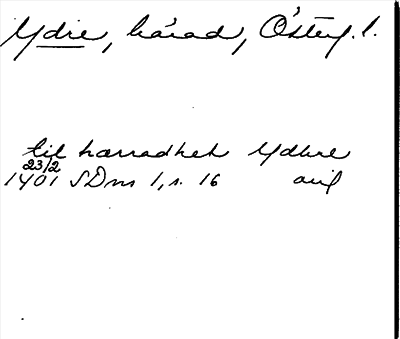 Ydre, härad, Österg. l.
til hærradhet Ydhre
23/2
1401 SDns 1, s. 16 avs